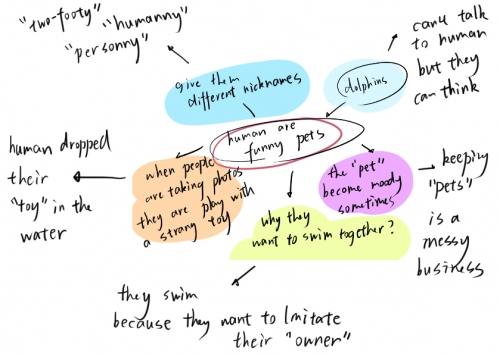 "two-footy"
"humanny"
"personny"
give them
different nicknames
dolphins
can't talk
to human
but they
can think
human are
funny pets
human dropped
their
"toy" in the
water
when people
are taking photos
they are play with
a strang toy
the "pet"
become moody
sometimes
keeping
"pets"
is a
messy
business
why they
want to swim together?
they swim
because they want to Imitate
their "owner"